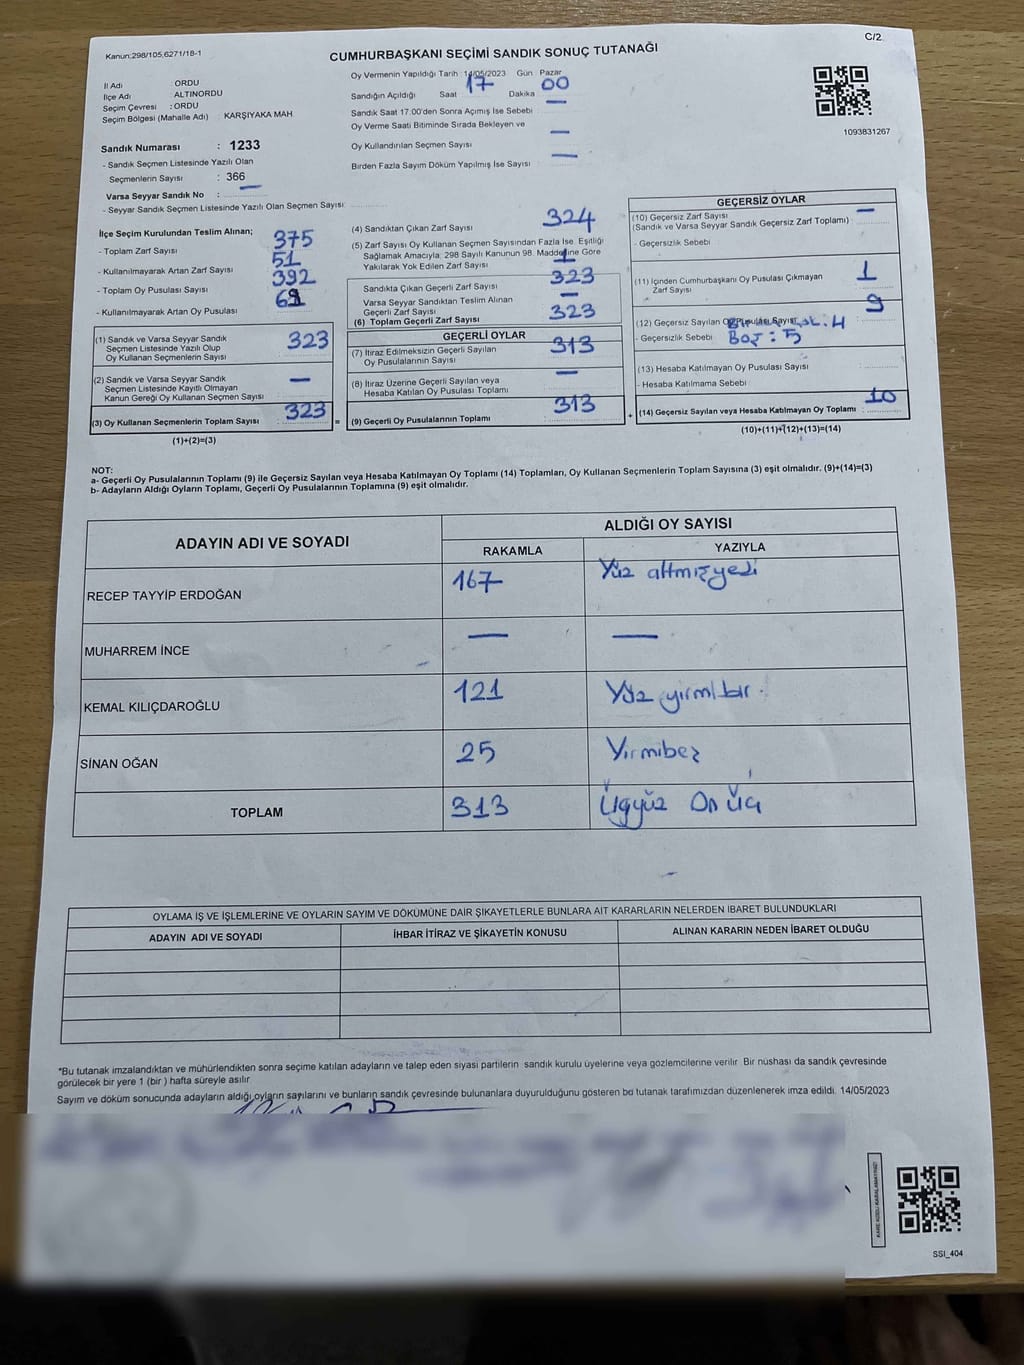 C/2
Kanun:298/105,6271/18-1
CUMHURBAŞKANI SEÇİMİ SANDIK SONUÇ TUTANAĞI
İl Adı : ORDU
İlçe Adı : ALTINORDU
Seçim Çevresi : ORDU
Seçim Bölgesi (Mahalle Adı) : KARŞIYAKA MAH
Sandık Numarası : 1233
- Sandık Seçmen Listesinde Yazılı Olan
Seçmenlerin Sayısı : 366
Varsa Seyyar Sandık No : —
- Seyyar Sandık Seçmen Listesinde Yazılı Olan Seçmen Sayısı:
Oy Vermenin Yapıldığı Tarih : 14/05/2023 Gün : Pazar
Sandığın Açıldığı Saat 17 Dakika 00
Sandık Saat 17:00'den Sonra Açımış İse Sebebi —
Oy Verme Saati Bitiminde Sırada Bekleyen ve
Oy Kullandırılan Seçmen Sayısı —
Birden Fazla Sayım Döküm Yapılmış İse Sayısı —
1093831267
İlçe Seçim Kurulundan Teslim Alınan;
- Toplam Zarf Sayısı 375
- Kullanılmayarak Artan Zarf Sayısı 51
- Toplam Oy Pusulası Sayısı 392
- Kullanılmayarak Artan Oy Pusulası 69
(1) Sandık ve Varsa Seyyar Sandık
Seçmen Listesinde Yazılı Olup
Oy Kullanan Seçmenlerin Sayısı 323
(2) Sandık ve Varsa Seyyar Sandık
Seçmen Listesinde Kayıtlı Olmayan
Kanun Gereği Oy Kullanan Seçmen Sayısı —
(3) Oy Kullanan Seçmenlerin Toplam Sayısı 323 =
(1)+(2)=(3)
(4) Sandıktan Çıkan Zarf Sayısı 324
(5) Zarf Sayısı Oy Kullanan Seçmen Sayısından Fazla İse, Eşitliği
Sağlamak Amacıyla, 298 Sayılı Kanunun 98. Maddesine Göre
Yakılarak Yok Edilen Zarf Sayısı 1
Sandıkta Çıkan Geçerli Zarf Sayısı 323
Varsa Seyyar Sandıktan Teslim Alınan
Geçerli Zarf Sayısı —
(6) Toplam Geçerli Zarf Sayısı 323
GEÇERLİ OYLAR
(7) İtiraz Edilmeksizin Geçerli Sayılan
Oy Pusulalarının Sayısı 313
(8) İtiraz Üzerine Geçerli Sayılan veya
Hesaba Katılan Oy Pusulaları Toplamı —
(9) Geçerli Oy Pusulalarının Toplamı 313 +
GEÇERSİZ OYLAR
(10) Geçersiz Zarf Sayısı
(Sandık ve Varsa Seyyar Sandık Geçersiz Zarf Toplamı) —
- Geçersizlik Sebebi
(11) İçinden Cumhurbaşkanı Oy Pusulası Çıkmayan
Zarf Sayısı 1
(12) Geçersiz Sayılan Oy Pusulası Sayısı 9
- Geçersizlik Sebebi 4
Boş : 5
(13) Hesaba Katılmayan Oy Pusulası Sayısı
- Hesaba Katılmama Sebebi
(14) Geçersiz Sayılan veya Hesaba Katılmayan Oy Toplamı 10
(10)+(11)+(12)+(13)=(14)
NOT:
a- Geçerli Oy Pusulalarının Toplamı (9) ile Geçersiz Sayılan veya Hesaba Katılmayan Oy Toplamı (14) Toplamları, Oy Kullanan Seçmenlerin Toplam Sayısına (3) eşit olmalıdır. (9)+(14)=(3)
b- Adayların Aldığı Oyların Toplamı, Geçerli Oy Pusulalarının Toplamına (9) eşit olmalıdır.
ADAYIN ADI VE SOYADI
ALDIĞI OY SAYISI
RAKAMLA YAZIYLA
RECEP TAYYİP ERDOĞAN 167 Yüz altmışyedi
MUHARREM İNCE — —
KEMAL KILIÇDAROĞLU 121 Yüz yirmibir.
SİNAN OĞAN 25 Yirmibeş
TOPLAM 313 Üçyüz On Üç
OYLAMA İŞ VE İŞLEMLERİNE VE OYLARIN SAYIM VE DÖKÜMÜNE DAİR ŞİKAYETLERLE BUNLARA AİT KARARLARIN NELERDEN İBARET BULUNDUKLARI
ADAYIN ADI VE SOYADI İHBAR İTİRAZ VE ŞİKAYETİN KONUSU ALINAN KARARIN NEDEN İBARET OLDUĞU
*Bu tutanak imzalandıktan ve mühürlendikten sonra seçime katılan adayların ve talep eden siyasi partilerin sandık kurulu üyelerine veya gözlemcilerine verilir. Bir nüshası da sandık çevresinde
görülecek bir yere 1 (bir ) hafta süreyle asılır.
Sayım ve döküm sonucunda adayların aldığı oyların sayılarını ve bunların sandık çevresinde bulunanlara duyurulduğunu gösteren bu tutanak tarafımızdan düzenlenerek imza edildi. 14/05/2023
KARE KODU KARALAMAYINIZ!
SSI_404